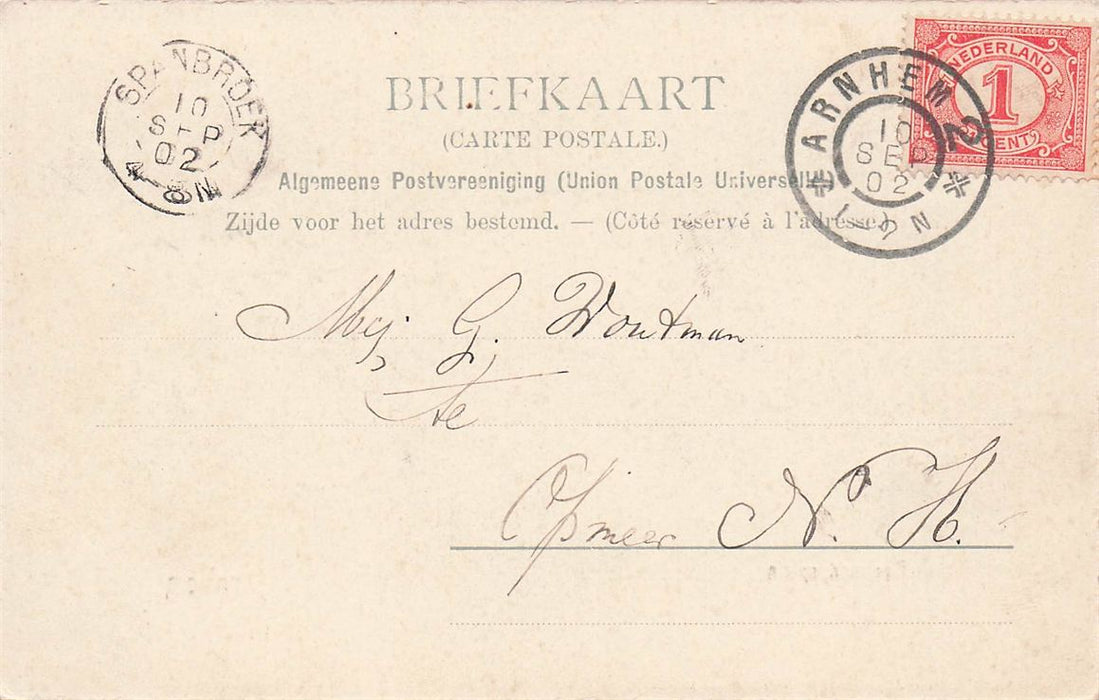 SPANBROEK
10
SEP
02
4-8N
BRIEFKAART
(CARTE POSTALE.)
Algemeene Postvereeniging (Union Postale Universelle)
Zijde voor het adres bestemd. — (Côté réservé à l'adresse.)
ARNHEM 2
10
SEP
02
N
NEDERLAND
1
CENT
Mej. G. Woutman
te
Opmeer N. H.